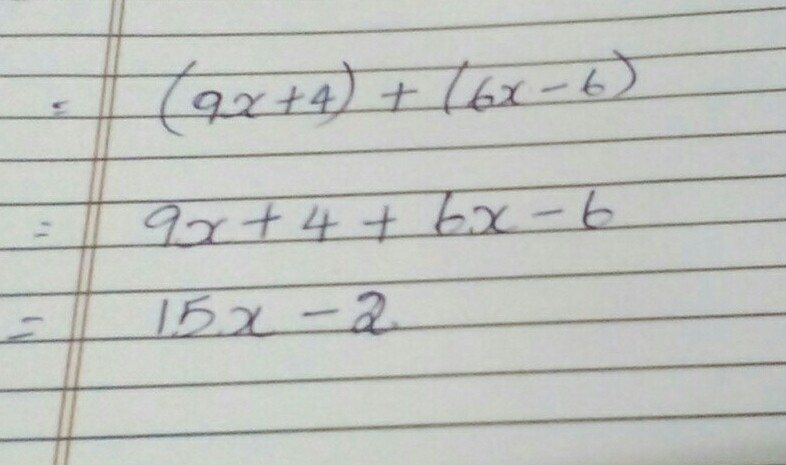 = (9x+4) + (6x-6)
= 9x + 4 + 6x - 6
= 15x - 2